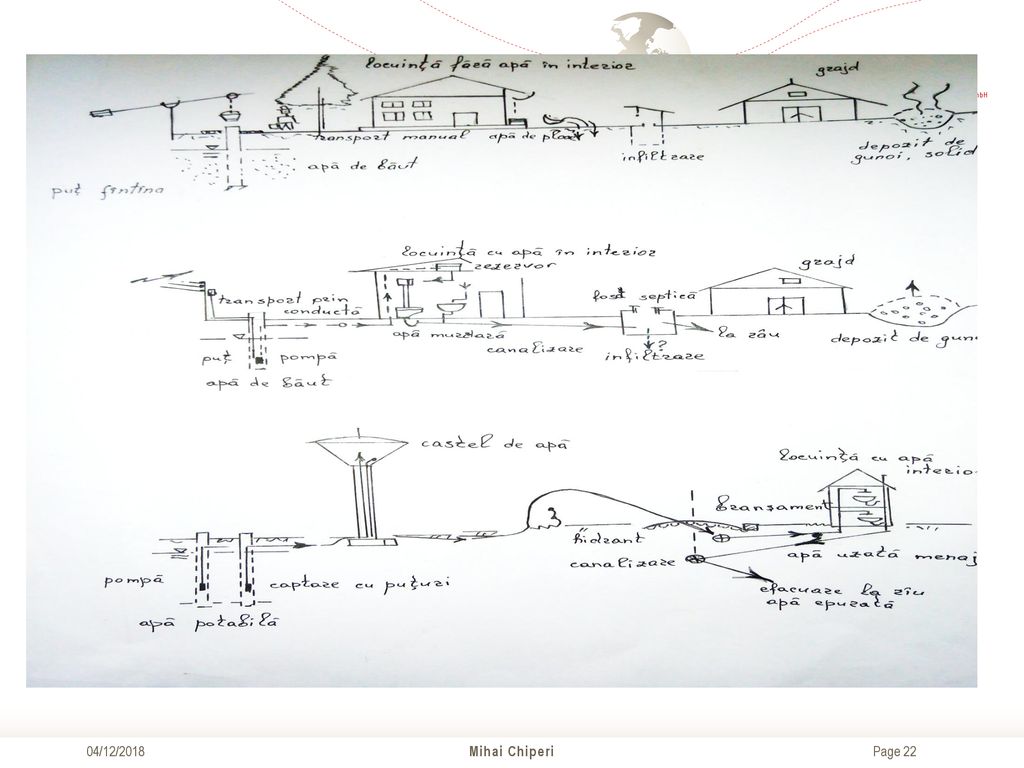 locuință fără apă în interior
grajd
bH
transport manual
apă de ploaie
infiltrare
depozit de
gunoi, solid
apă de băut
puț fîntîna
locuință cu apă în interior
rezervor
grajd
transport prin
conductă
fosă septică
apă murdară
canalizare
?
infiltrare
la râu
depozit de guno
puț
pompă
apă de băut
castel de apă
locuință cu apă
interio
branșament
hidrant
canalizare
apă uzată menaj
pompă
captare cu puțuri
efacuare la rîu
apă epurată
apă potabilă
04/12/2018
Mihai Chiperi
Page 22